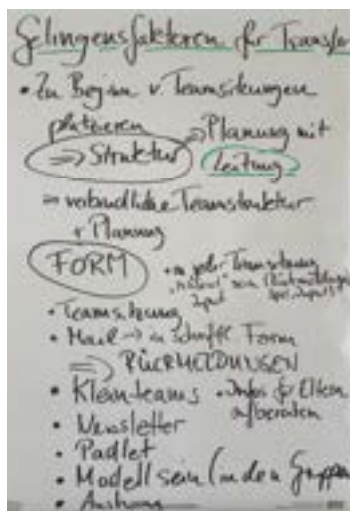 Gelingensfaktoren für Transfer
• Zu Beginn v. Teamsitzungen
platzieren
⇒ Struktur ⇒ Planung mit
Leitung
⇒ verbindliche Teamstruktur
+ Planung
FORM • in jeder Teamsitzung
Input
• Teamsitzung
• Mail → in schriftl. Form
⇒ RÜCKMELDUNGEN
• Kleinteams • Infos für Eltern
aufbereiten
• Newsletter
• Padlet
• Modell sein (in den Gruppen
• Aushang